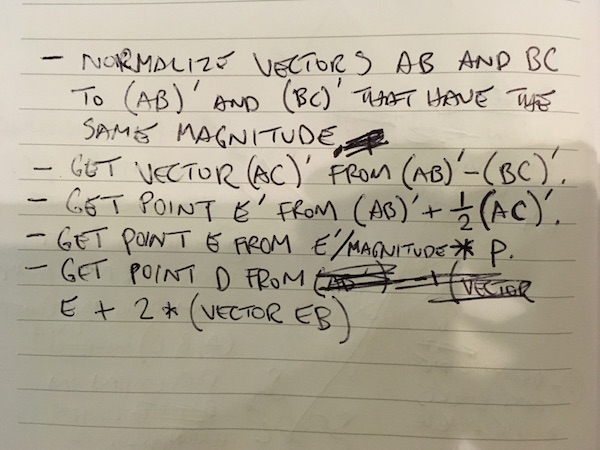 - NORMALIZE VECTORS AB AND BC
TO (AB)' AND (BC)' THAT HAVE THE
SAME MAGNITUDE.
- GET VECTOR (AC)' FROM (AB)' - (BC)'.
- GET POINT E' FROM (AB)' + 1/2 (AC)'.
- GET POINT E FROM E'/MAGNITUDE * P.
- GET POINT D FROM (VECTOR
E + 2 * (VECTOR EB)